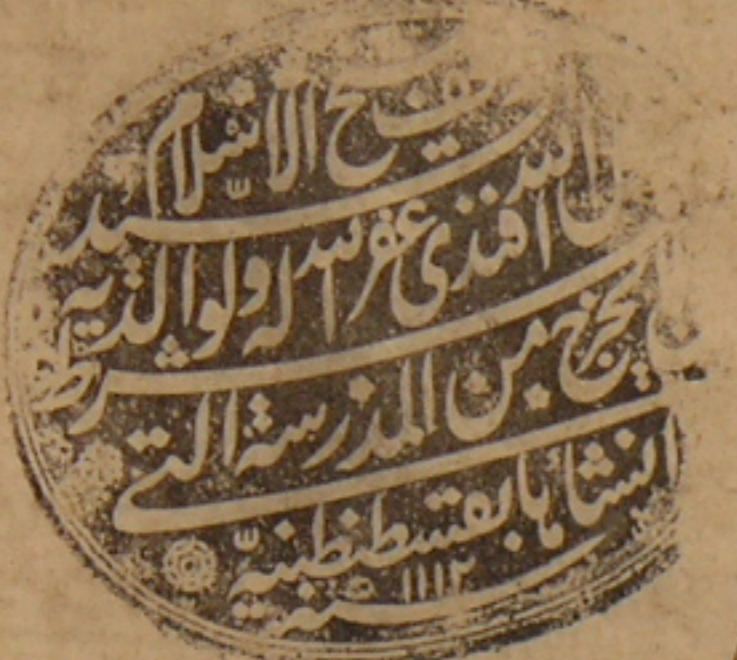 شيخ الاسلام
السيد الله افندى غفر الله له ولوالديه
بشرط يخرج من المدرسة التى
انشأها بقسطنطنية
سنة ١١١٢